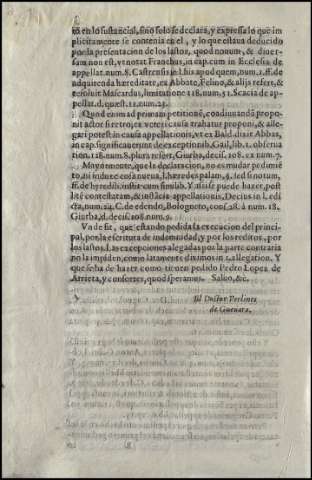 to en lo sustancial, sino solo se declara, y expressa lo que im
plicitamente se contenia en el, y lo que estava deducido
por la presentacion de los lastos, quod non aut, & diver-
sam non est, vt notat Franchus, in cap. cum in Ecclesia de
appellat. num. 8. Castrensis in l. his apud quem, num. 1. ff. de
adquirenda hæreditate, ex Abbate, Felino, & alijs refert, &
resoluit Mascardus, limitatione 118. num. 51. Scacia de ap-
pellat. d. quæst. 11. num. 23.
Quod enim ad primam petitionē, condiuandā propo-
nit actor si retro ex veteri causa trahatur propon, & alle-
gari potest in causa appellationis, vt ex Bald. dixit Abbas,
in cap. significaverunt de exceptionib. Gail, lib. 1. observa
tion. 118. num. 8. plura refert, Giurba, decis. 108. ex num. 7.
Mayormente, que la declaracion, no es mudar pedimē
to, ni inducere da nueva, l. hæredes palam, §. sed si notum,
ff. de hæredib. instit. cum similib. Y assi se puede hazer, post
litē contestatam, & in stācia appellationis, Decius in l. edi
cta, num. 24. C. de edendo, Bologneto, cons. 28. à num. 18,
Giurba, d. decis. 108. num. 9.
Vnde fit, que estando pedida la execucion del princi-
pal, por la escritura de indemnidad, y por los reditos, por
los lastos. Las excepciones alegadas por la parte contraria
no la impiden, como latamente diximos in 1. allegation. Y
que se ha de hazer como tienen pedido Pedro Lopez de
Arrieta, y consortes, quod speramus. Salvo, &c.
El Doctor Perlines
de Guevara.